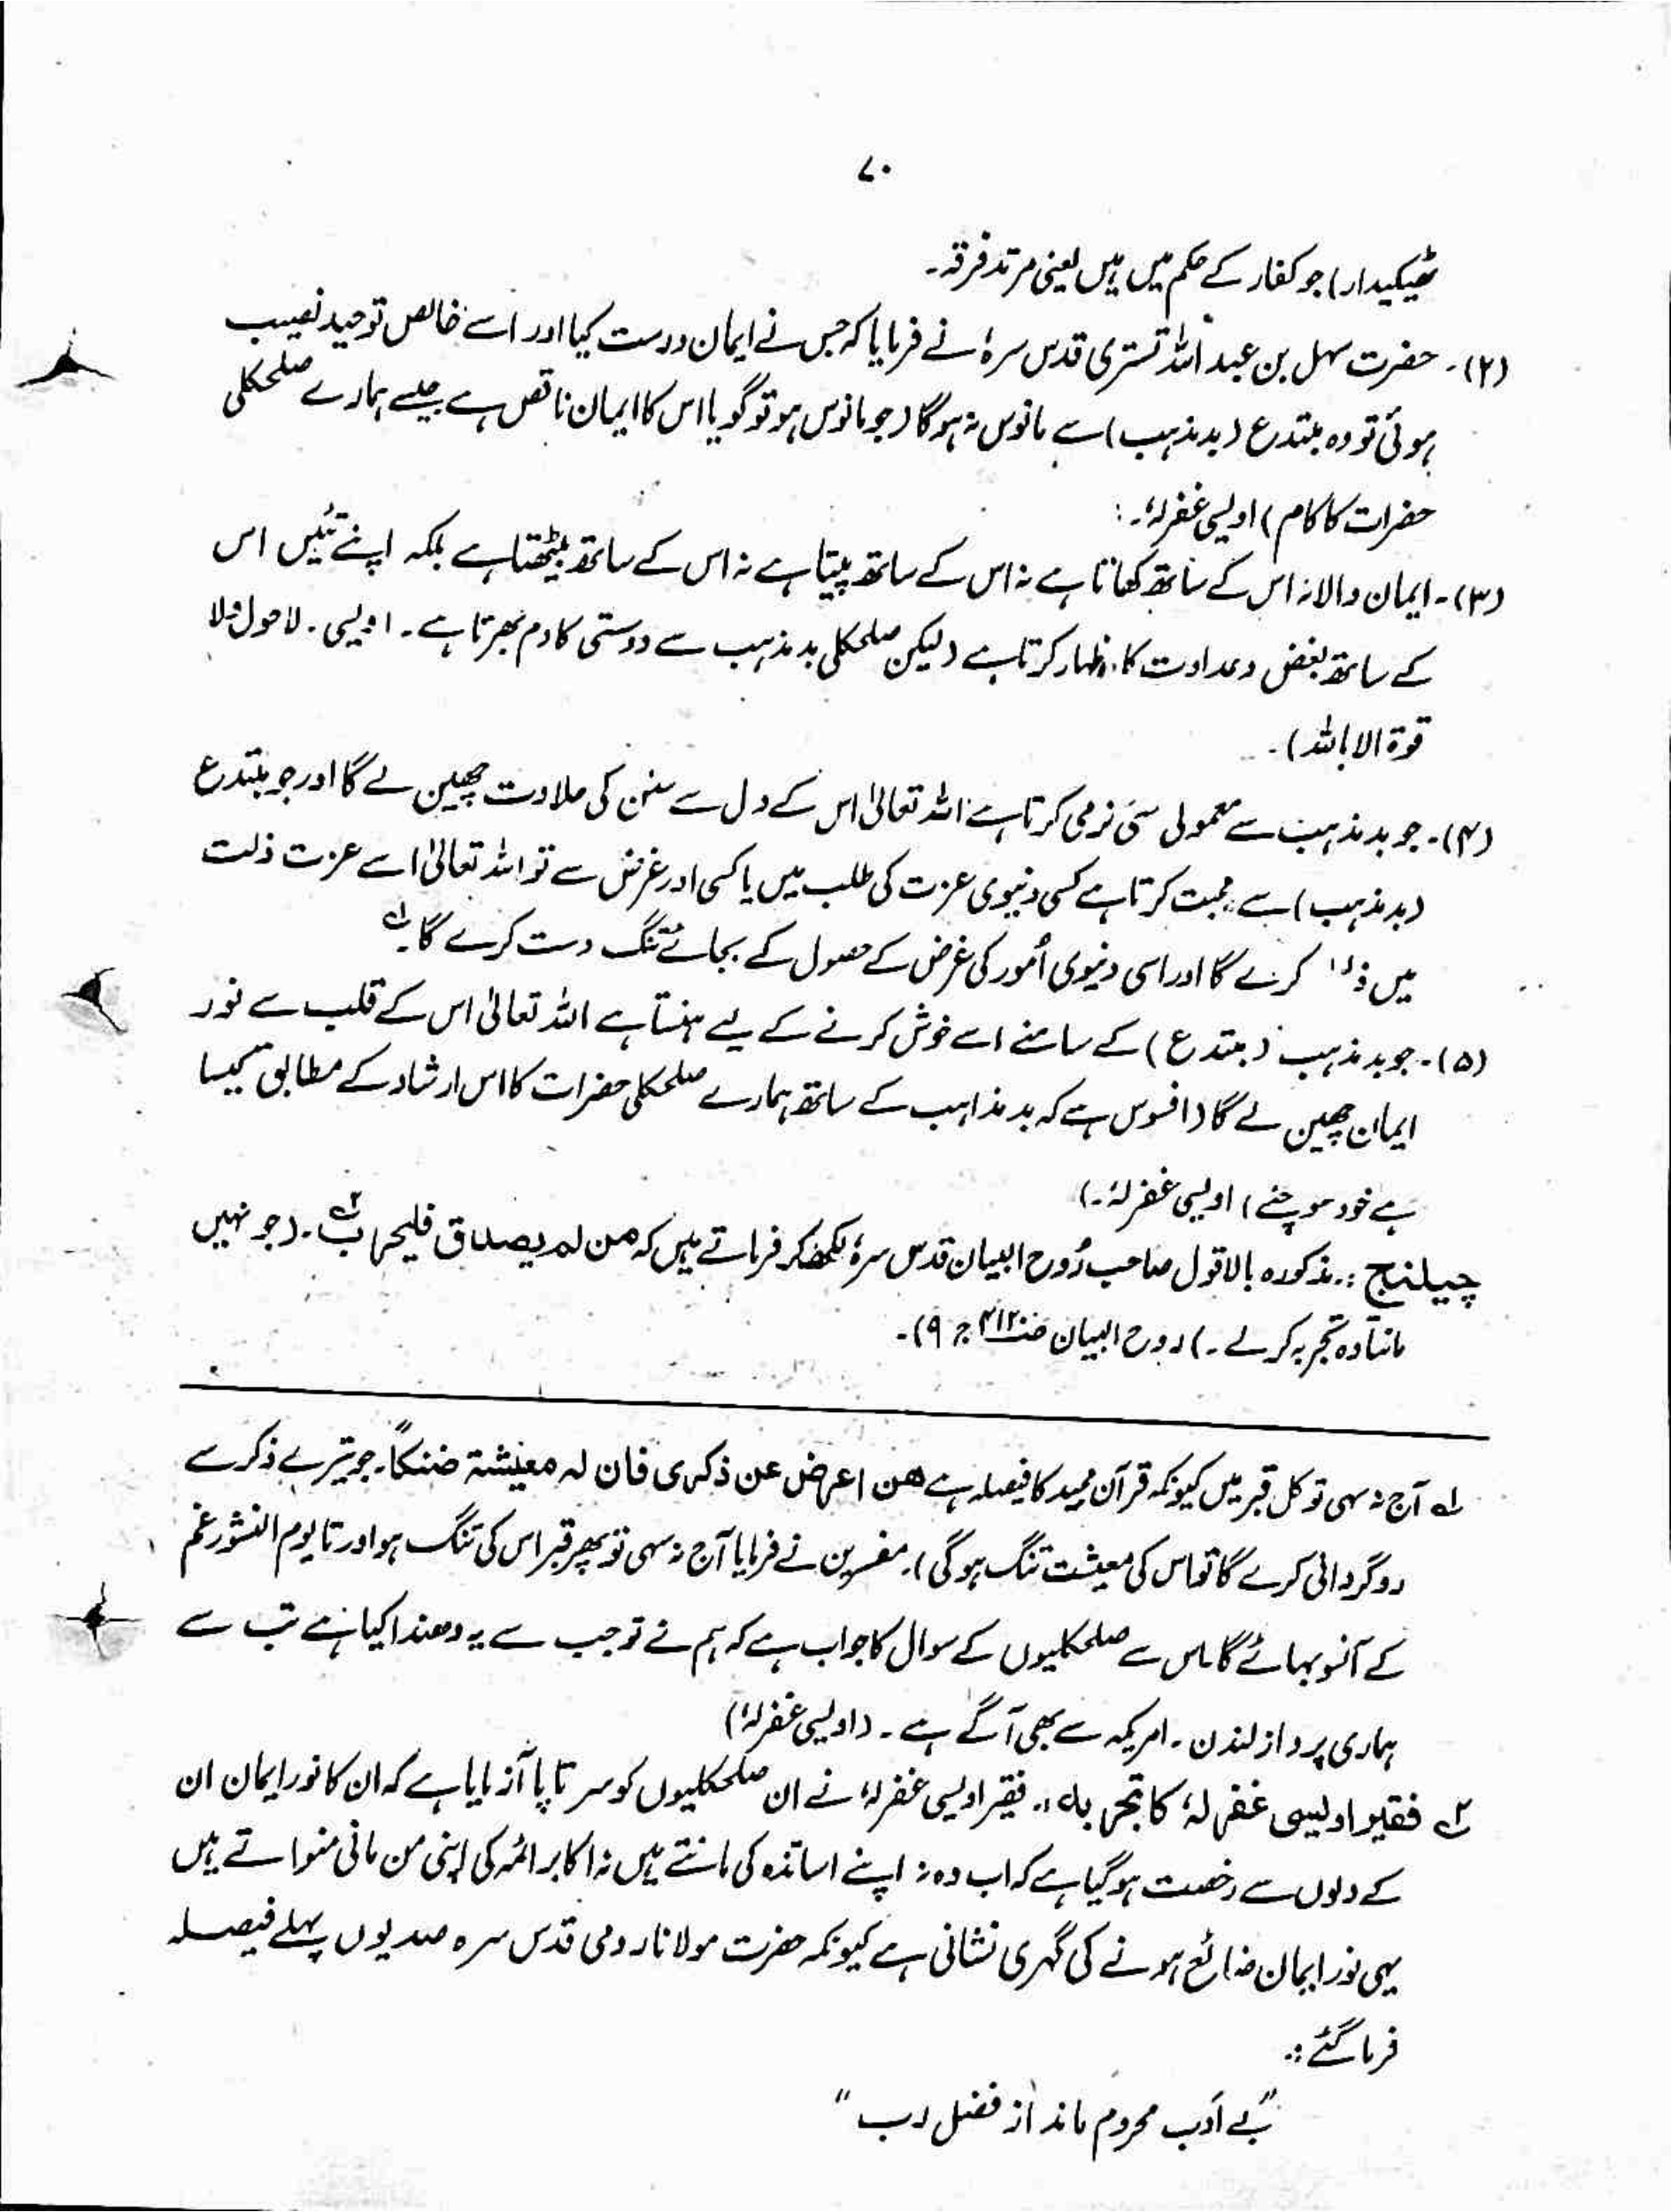 ۷۰
ٹھیکیدار) جو کفار کے حکم میں ہیں یعنی مرتد فرقہ۔
(۲)۔ حضرت سہل بن عبد اللہ تستری قدس سرہٗ نے فرمایا کہ جس نے ایمان درست کیا اور اسے خالص توحید نصیب
ہوئی تو وہ مبتدع (بدمذہب) سے مانوس نہ ہوگا (جو مانوس ہو تو گویا اس کا ایمان ناقص ہے جیسے ہمارے صلحکلی
حضرات کا کام) اویسی غفرلہٗ۔:
(۳)۔ ایمان والا نہ اس کے ساتھ کھاتا ہے نہ اس کے ساتھ پیتا ہے نہ اس کے ساتھ بیٹھتا ہے بلکہ اپنے تئیں اس
کے ساتھ بغض و عداوت کا اظہار کرتا ہے (لیکن صلحکلی بدمذہب سے دوستی کا دم بھرتا ہے۔ اویسی۔ لاحول ولا
قوۃ الا باللہ)۔
(۴)۔ جو بدمذہب سے معمولی سی نرمی کرتا ہے اللہ تعالیٰ اس کے دل سے سنن کی حلاوت چھین لے گا اور جو مبتدع
(بدمذہب) سے محبت کرتا ہے کسی دنیوی عزت کی طلب میں یا کسی اور غرض سے تو اللہ تعالیٰ اسے عزت ذلت
میں کرے گا اور اسی دنیوی اُمور کی غرض کے حصول کے بجائے تنگ دست کرے گا۔ ؎۱
(۵)۔ جو بدمذہب (مبتدع) کے سامنے اسے خوش کرنے کے لیے ہنستا ہے اللہ تعالیٰ اس کے قلب سے نور
ایمان چھین لے گا (افسوس ہے کہ بدمذاہب کے ساتھ ہمارے صلحکلی حضرات کا اس ارشاد کے مطابق کیسا
ہے خود سوچئے) اویسی غفرلہٗ۔)
چیلنج :۔ مذکورہ بالا قول صاحب رُوح البیان قدس سرہٗ لکھ کر فرماتے ہیں کہ من لم یصداق فلیجراب ؎۲۔ (جو نہیں
مانتا وہ تجربہ کرلے۔) (روح البیان ص۴۱۲ ج ۹)۔
؎۱ آج نہ سہی تو کل قبر میں کیونکہ قرآن مجید کا فیصلہ ہے من اعرض عن ذکری فان لہ معیشۃ ضنکاً۔ جو تیرے ذکر سے
روگردانی کرے گا تو اس کی معیشت تنگ ہوگی)۔ مفسرین نے فرمایا آج نہ سہی تو پھر قبر اس کی تنگ ہو اور تا یوم النشور غم
کے آنسو بہائے گا۔ اس سے صلحکلیوں کے سوال کا جواب ہے کہ ہم نے تو جب سے یہ دھندا کیا ہے تب سے
ہماری پرواز لندن۔ امریکہ سے بھی آگے ہے۔ (اویسی غفرلہٗ)
؎۲ فقیر اویسی غفرلہٗ کا تجربہ :۔ فقیر اویسی غفرلہٗ نے ان صلحکلیوں کو سر تا پا آزمایا ہے کہ ان کا نور ایمان ان
کے دلوں سے رخصت ہوگیا ہے کہ اب وہ نہ اپنے اساتذہ کی مانتے ہیں نہ اکابر ائمہ کی اپنی من مانی منواتے ہیں
یہی نور ایمان ضائع ہونے کی گہری نشانی ہے کیونکہ حضرت مولانا رومی قدس سرہ صدیوں پہلے فیصلہ
فرما گئے :۔
"بے اَدب محروم ماند از فضل رب"